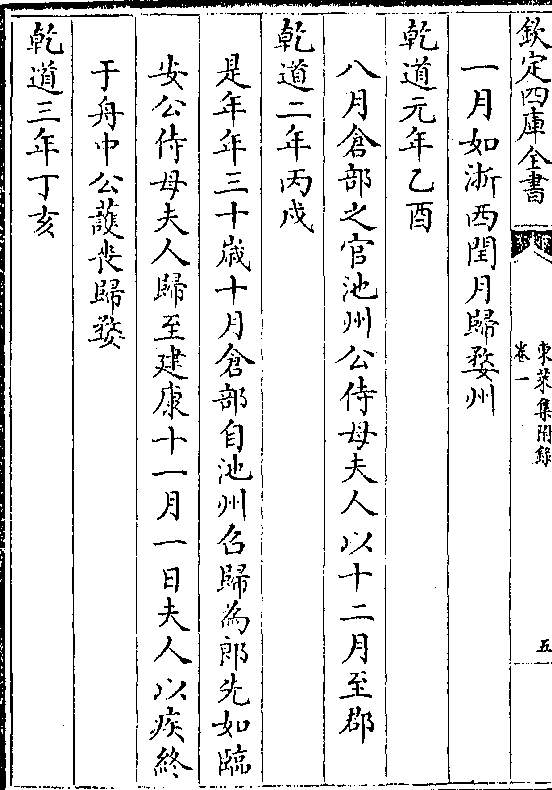 欽定四庫全書
東萊集附錄
卷一
五
一月如浙西閏月歸婺州
乾道元年乙酉
八月倉部之官池州公侍母夫人以十二月至郡
乾道二年丙戌
是年年三十歳十月倉部自池州召歸為郎先如臨
安公侍母夫人歸至建康十一月一日夫人以疾終
于舟中公䕶喪歸婺
乾道三年丁亥